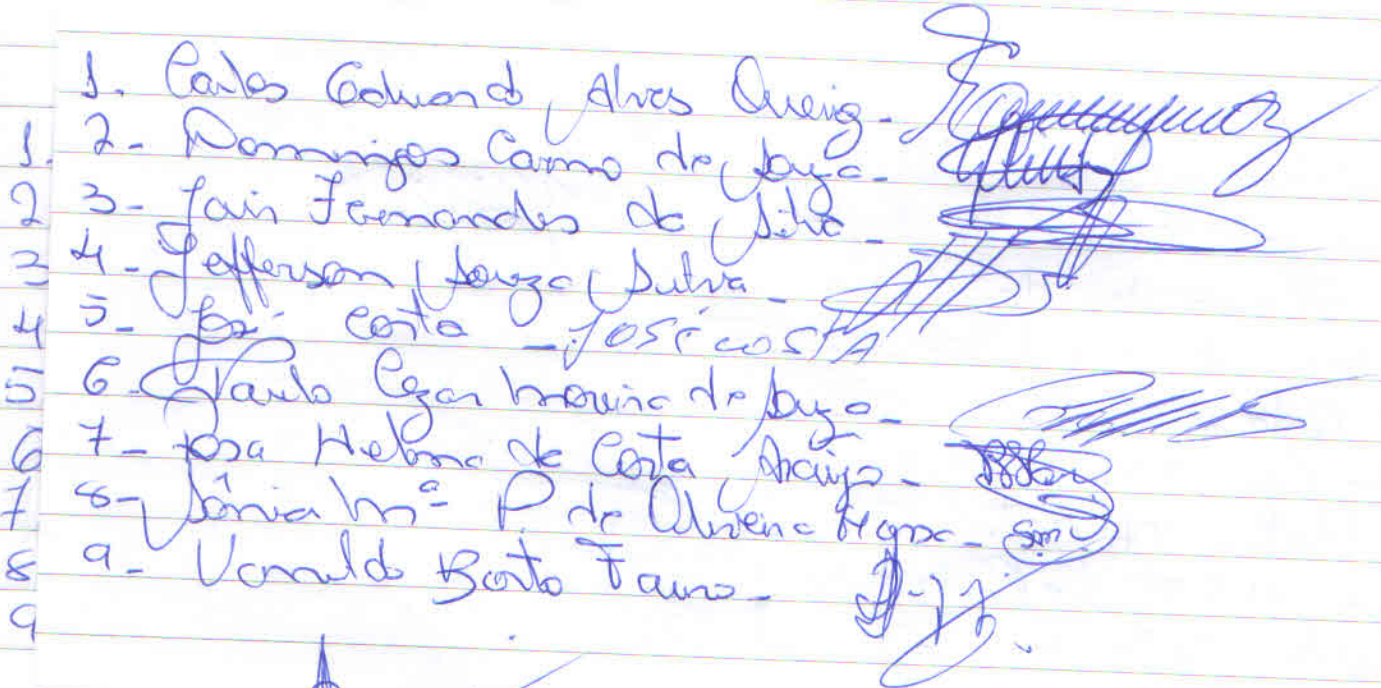 1- Carlos Eduardo Alves Queiroz -
1. 2- Domingos Carmo de Souza -
2 3- Jair Fernandes da Silva -
3 4- Jefferson Souza Silva -
4 5- José Costa - JOSÉ COSTA
5 6- Paulo Cezar Moreira de Souza -
6 7- Rosa Helena da Costa Araújo -
7 8- Sônia Mª P. de Oliveira -
8 9- Vanildo
9